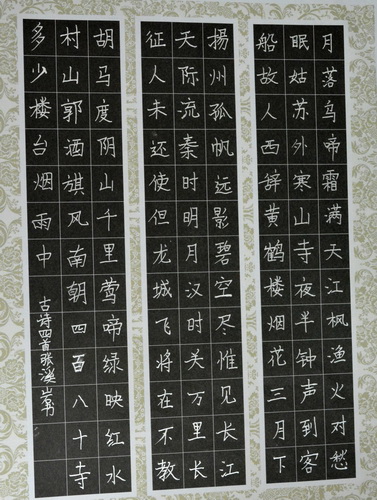 月落乌啼霜满天江枫渔火对愁
眠姑苏外寒山寺夜半钟声到客
船故人西辞黄鹤楼烟花三月下
揚州孤帆远影碧空尽惟见长江
天际流秦时明月汉时关万里长
征人未还使但龙城飞将在不教
胡马度阴山千里莺啼绿映红水
村山郭酒旗风南朝四百八十寺
多少楼台烟雨中
古诗四首张溪